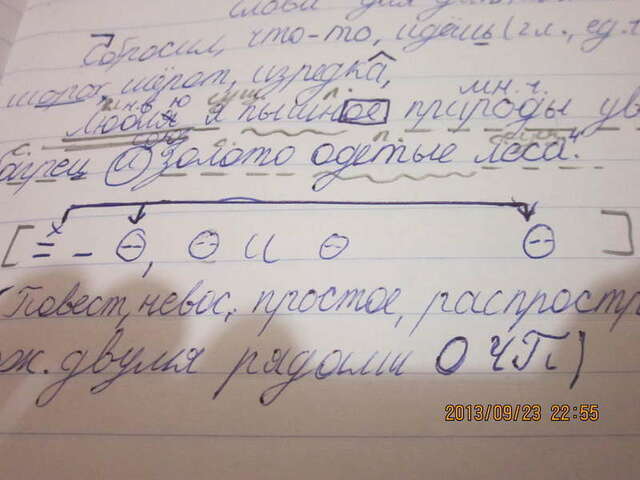 слова для
Сбросил, что-то, идёшь (гл., ед.ч
шорох, шёпот, изредка,
мн.ч.
Люблю я пышное природы ув
багрец и золото одетые леса.⁴
[= – ⊖, ⊖ и ⊖ ⊖]
(Повест, невос, простое, распростр
ож. двумя рядами ОЧП)
2013/09/23 22:55